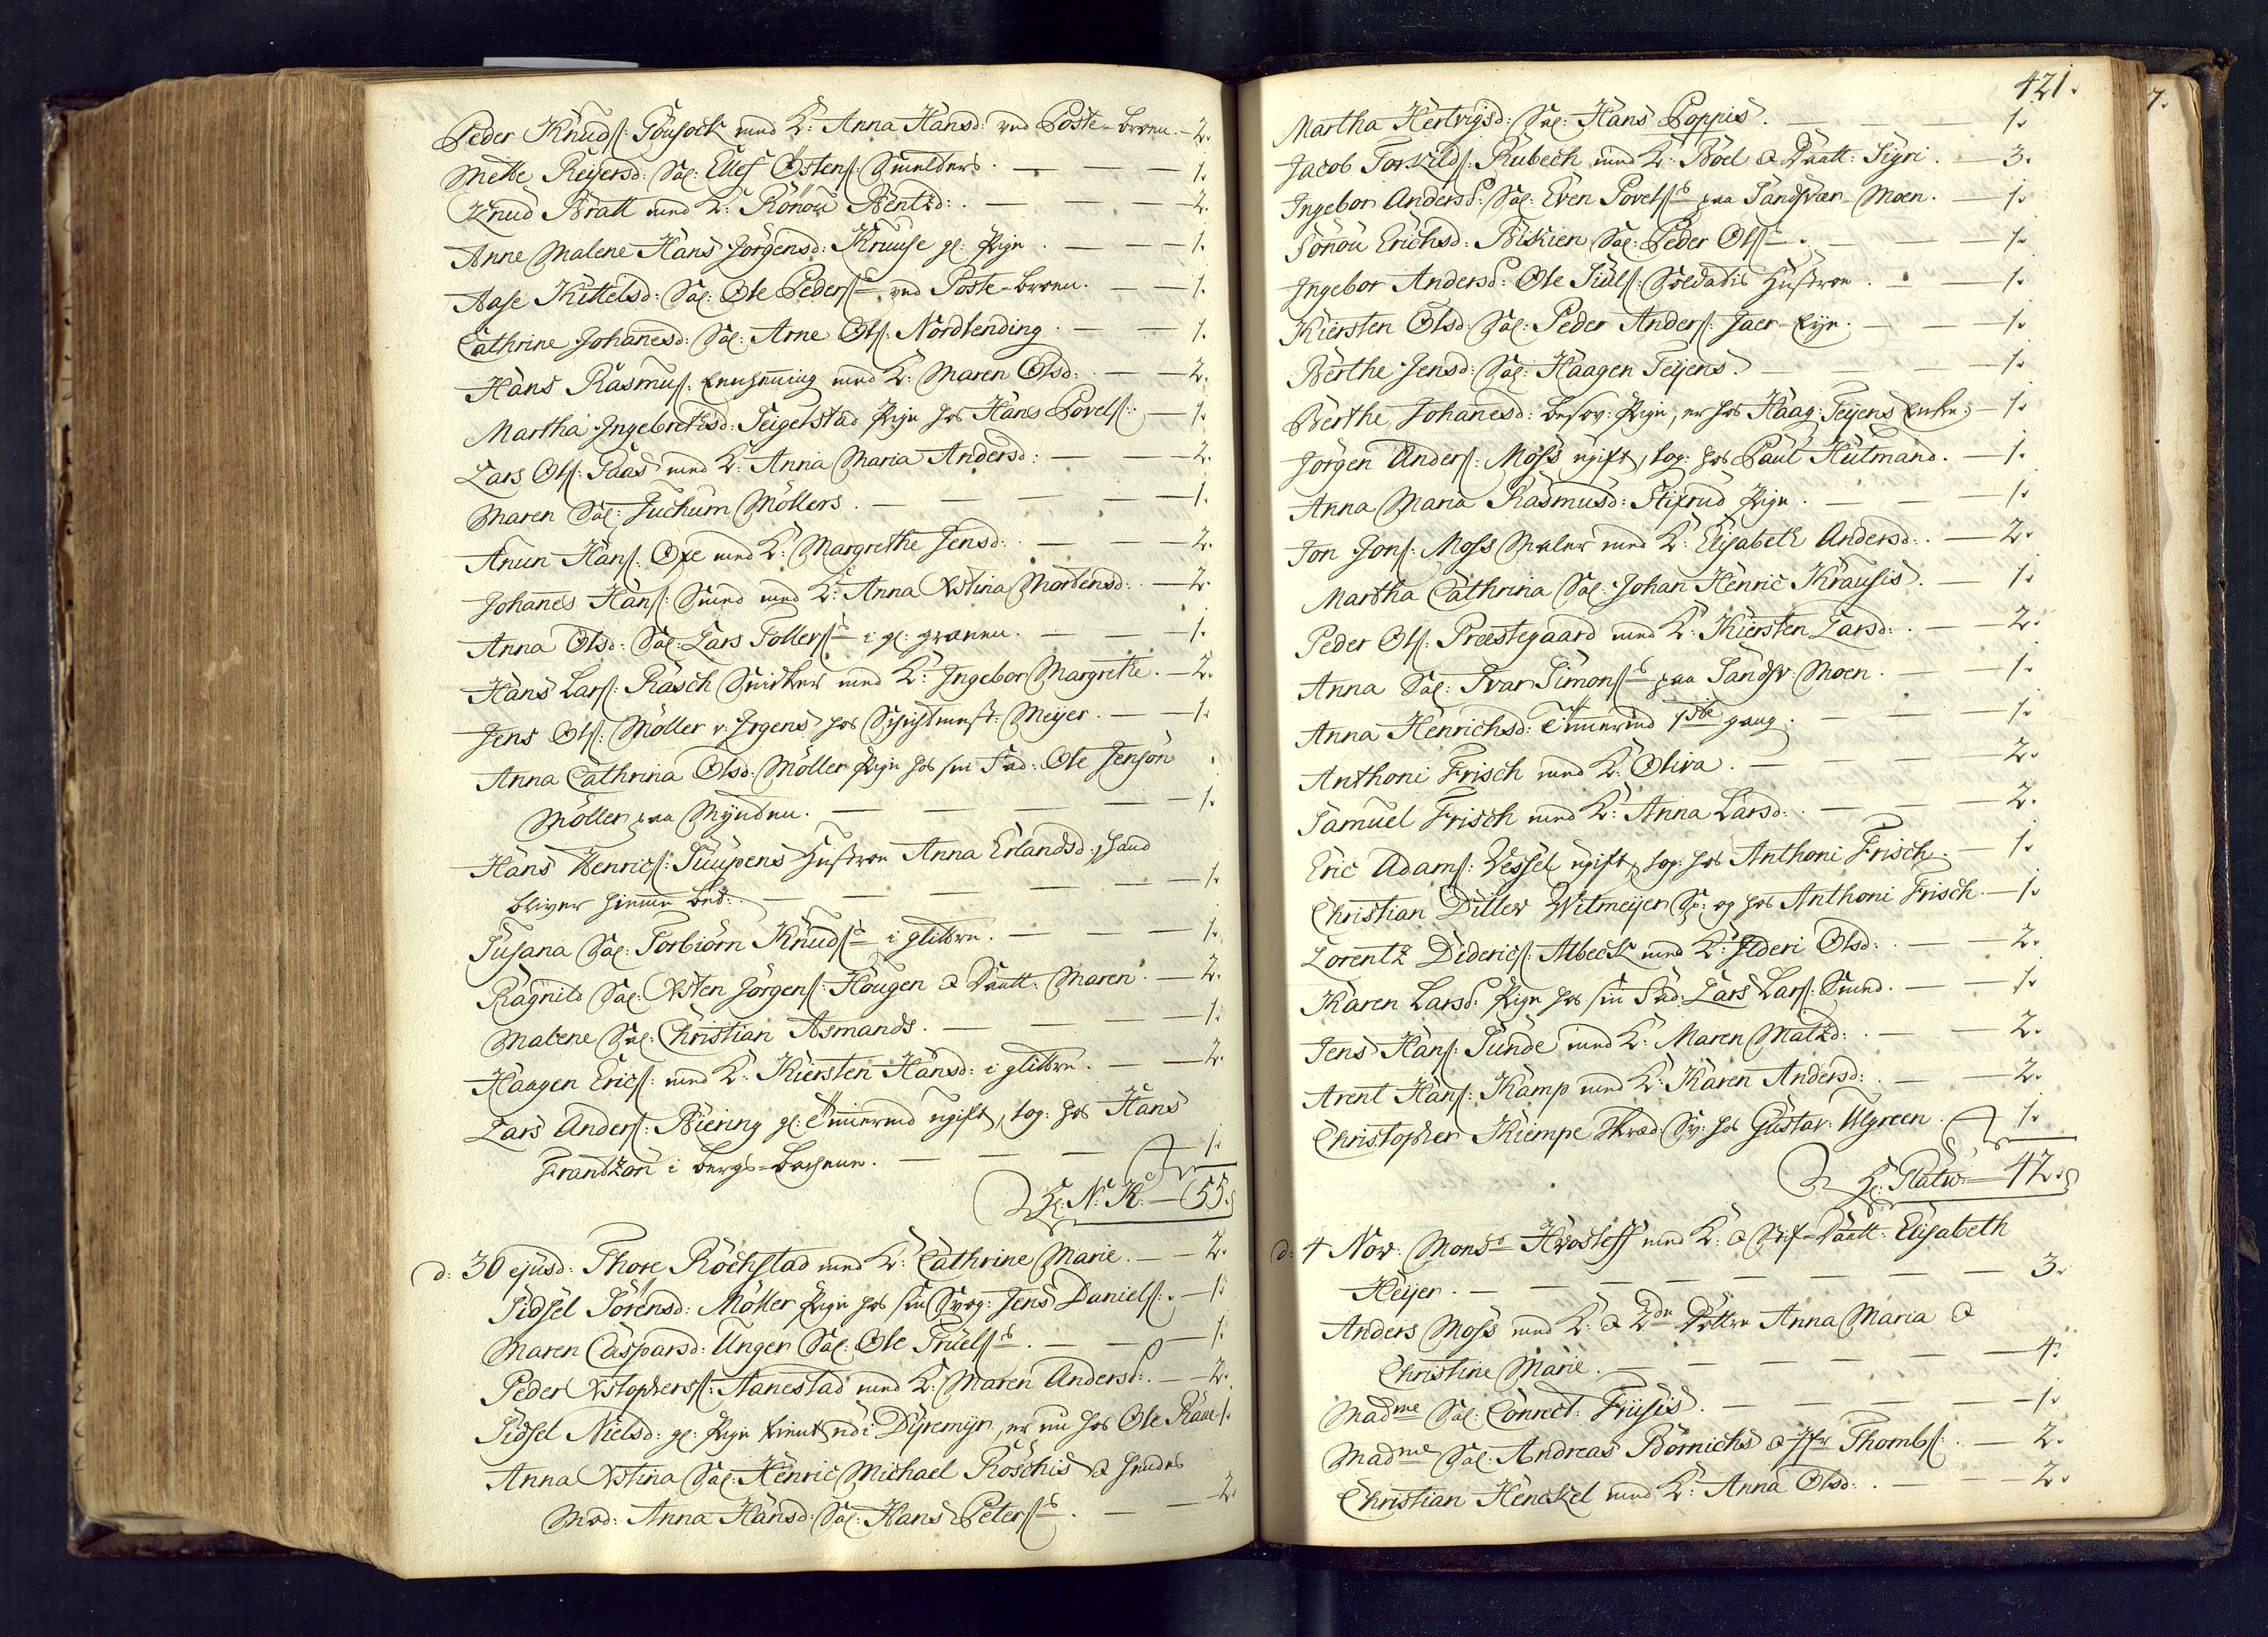 Peder Knuds: Pousoch med K: Anna Hansd: ved Poste-broen. — 2.
Mette Reyersd: Sal: Ellef Östens: Smelders. — 1.
Knud Bratt med K: Rönou Bentzd: — 2.
Anne Malene Hans Jörgensd: Kruuse gl: Pige. — 1.
Aase Kittelsd: Sal: Ole Peders: ved Poste-broen. — 1.
Cathrine Johanesd: Sal: Arne Ols: Nordlending. — 1.
Hans Rasmus: med K: Maren Olsd: — 2.
Martha Ingebrethsd: Teigelstad Pige hos Hans Povels: — 1.
Lars Ols: Paas med K: Anna Maria Andersd: — 2.
Maren Sal: Juchum Möllers. — 1.
Anun Hans: Oxe med K: Margrethe Jensd: — 2.
Johanes Hans: Smed med K: Anna Xstina Mortensd: — 2.
Anna Olsd: Sal: Lars Tollers: i gl: gruven. — 1.
Hans Lars: Rasch Snidker med K: Ingebor Margrethe. — 2.
Jens Ols: Möller v: Jrgens hos Meyer. — 1.
Anna Cathrina Olsd: Möller Pige hos sin Fad: Ole Jensön
Möller paa Mynden. — 1.
Hans Henrics: Suupens Hustroe Anna Erlandsd:, hand
bliver hiemme bet: — 1.
Susana Sal: Torbiörn Knuds: i glitvre. — 1.
Ragnild Sal: Xsten Jörgens: Hougen & Daatt: Maren. — 2.
Malene Sal: Christian Asmands. — 1.
Haagen Erics: med K: Kiersten Hansd: i glitvre. — 2.
Lars Anders: Biering gl: Timermd ugift, log: hos Hans
Frandzön i bergs-bachene. — 1.
N: K: — 55.
d: 30 ejusd: Thore Rochstad med K: Cathrine Marie. — 2.
Sidsel Sörensd: Möller Pige hos sin Svog: Jens Daniels: — 1.
Maren Caspersd: Unger Sal: Ole Truels: — 1.
Peder Xstophers: Aanestad med K: Maren Andersd: — 2.
Sidsel Nielsd: gl: Pige tient ndi Dyremyr, er nu hos Ole Raae 1.
Anna Xstina Sal: Henric Michael Röschis & hendes
Mod: Anna Hansd: Sal: Hans Peters: — 2.
421.
Martha Hertvigsd: Sal: Hans Poppis. — 1.
Jacob Torkilds: Rubech med K: Boel & Daatt: Sigri. — 3.
Ingebor Andersd: Sal: Even Povels: paa Sandsvær Moen. — 1.
Rönou Erichsd: Biskien Sal: Peder Ols: — 1.
Ingebor Andersd: Ole Siuls: Soldatis Hustroe. — 1.
Kiersten Olsd: Sal: Peder Anders: Jaer-Eye. — 1.
Berthe Jensd: Sal: Haagen Teyens. — 1.
Berthe Johanesd: besov: Pige, er hos Haag: Teyens Enke. — 1.
Jörgen Anders: Moss ugift, log: hos Paul Hutmand. — 1.
Anna Maria Rasmusd: Stixrud Pige. — 1.
Jon Jons: Moss Maler med K: Elisabeth Andersd: — 2.
Martha Cathrina Sal: Johan Henric Krausis. — 1.
Peder Ols: Præstegaard med K: Kiersten Larsd: — 2.
Anna Sal: Ivar Simons: paa Sandsv: Moen. — 1.
Anna Henrichsd: Timermd 1ste gang. — 1.
Anthoni Frisch med K: Oliva. — 2.
Samuel Frisch med K: Anna Larsd: — 2.
Eric Adams: Vessel ugift, log: hos Anthoni Frisch. — 1.
Christian Ditlev Witmeyer Sp: og hos Anthoni Frisch. — 1.
Lorentz Diderics: Albech med K: Ilderi Olsd: — 2.
Karen Larsd: Pige hos sin Fad: Lars Lars: Smed. — 1.
Jens Hans: Sunde med K: Maren Matzd: — 2.
Arent Hans: Kamp med K: Karen Andersd: — 2.
Christopher Kiempe Skræd: Sv: hos Gustav: Ulgreen. — 1.
— 42.
d: 4 Nov: Monsr Hvosleff med K: & Stif-Daatt: Elisabeth
Heyer. — 3.
Anders Moss med K: & 2de Döttre Anna Maria &
Christine Marie. — 4.
Madme Sal: Conrect: Friisis. — 1.
Madme Sal: Andreas Börnichs & Jfr Thombs: — 2.
Christian Henckel med K: Anna Olsd: — 2.